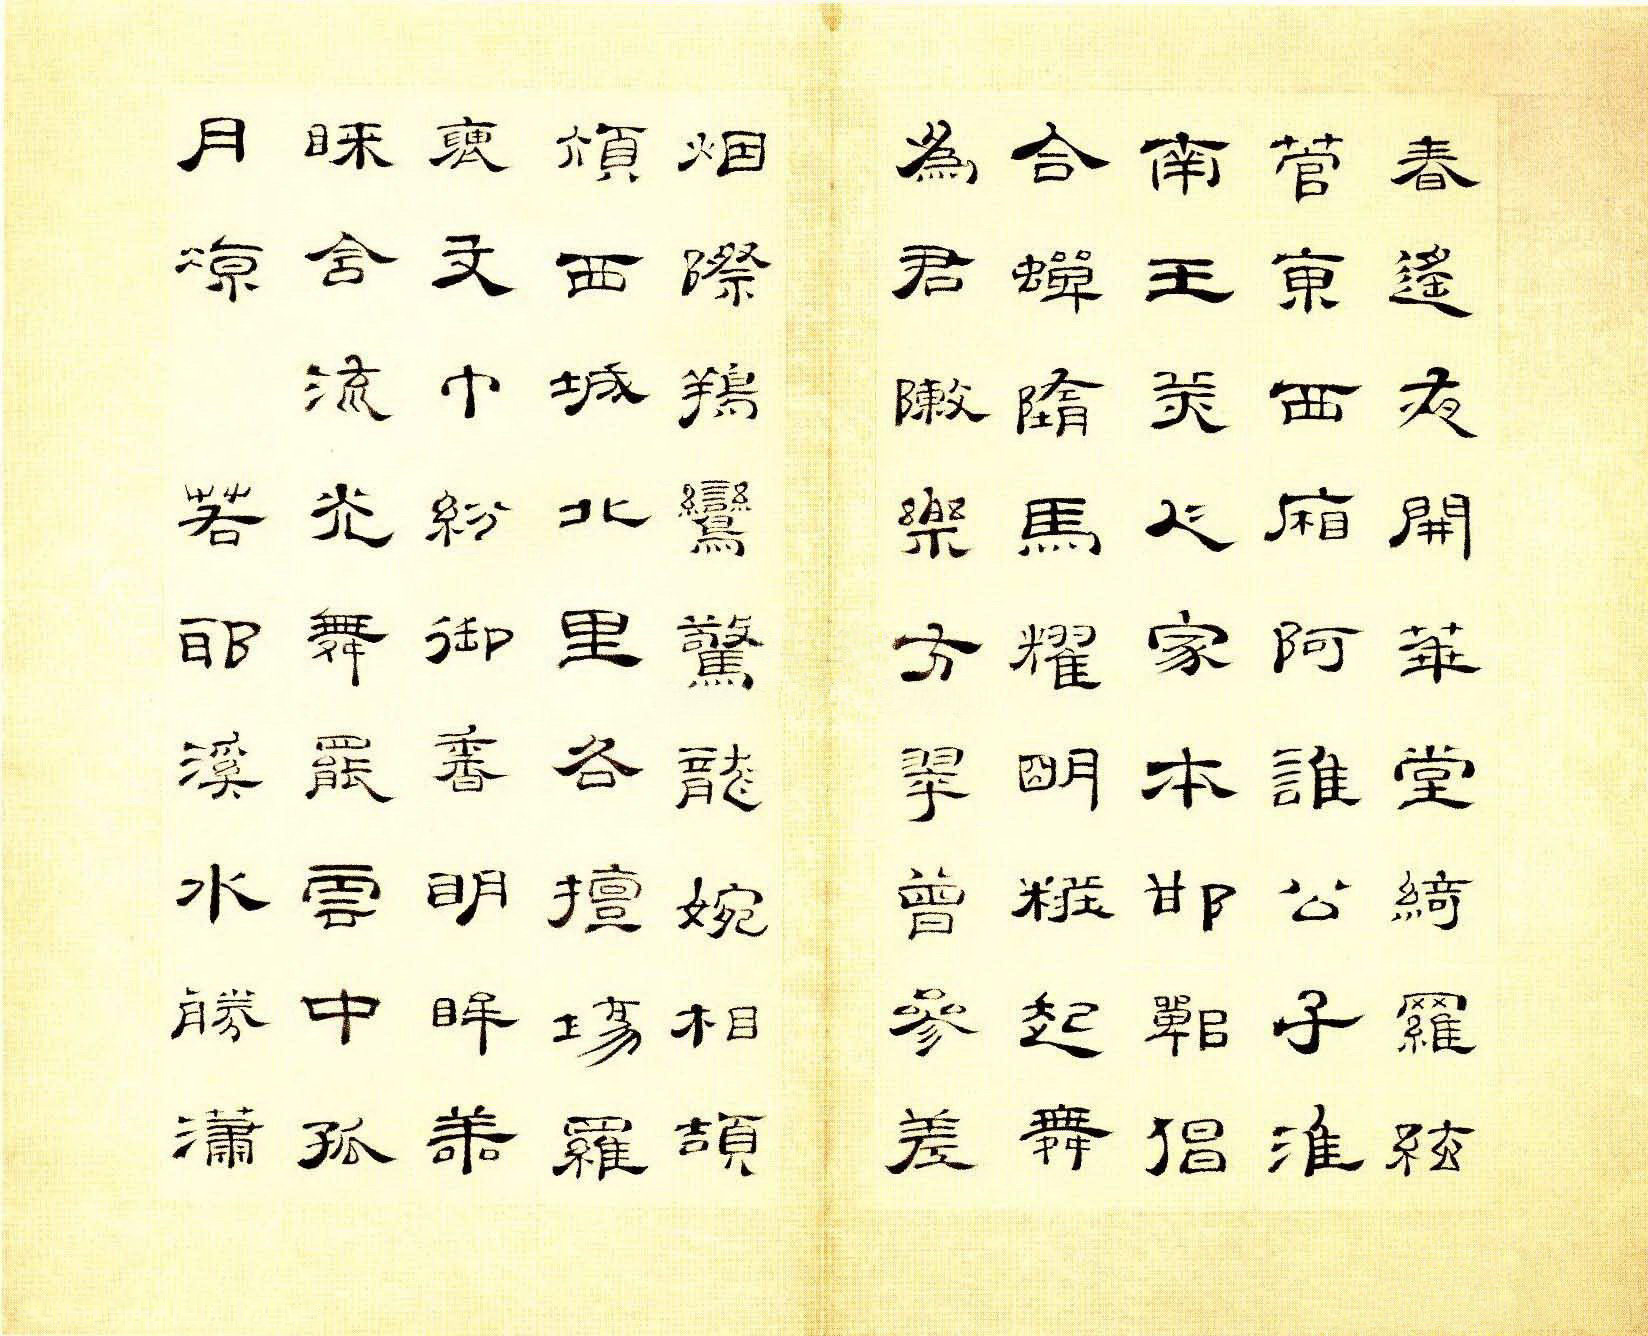 春遙夜開華堂綺羅絃
管東西廂阿誰公子淮
南王美人家本邯鄲倡
合蟬隋馬耀明糚起舞
為君敶樂方翠曾參差
烟際鴹鸞驚龍婉相頡
頏西城北里各擅場羅
文巾紛御香明眸善
睞含流光舞罷雲中孤
月凉 若耶溪水勝瀟